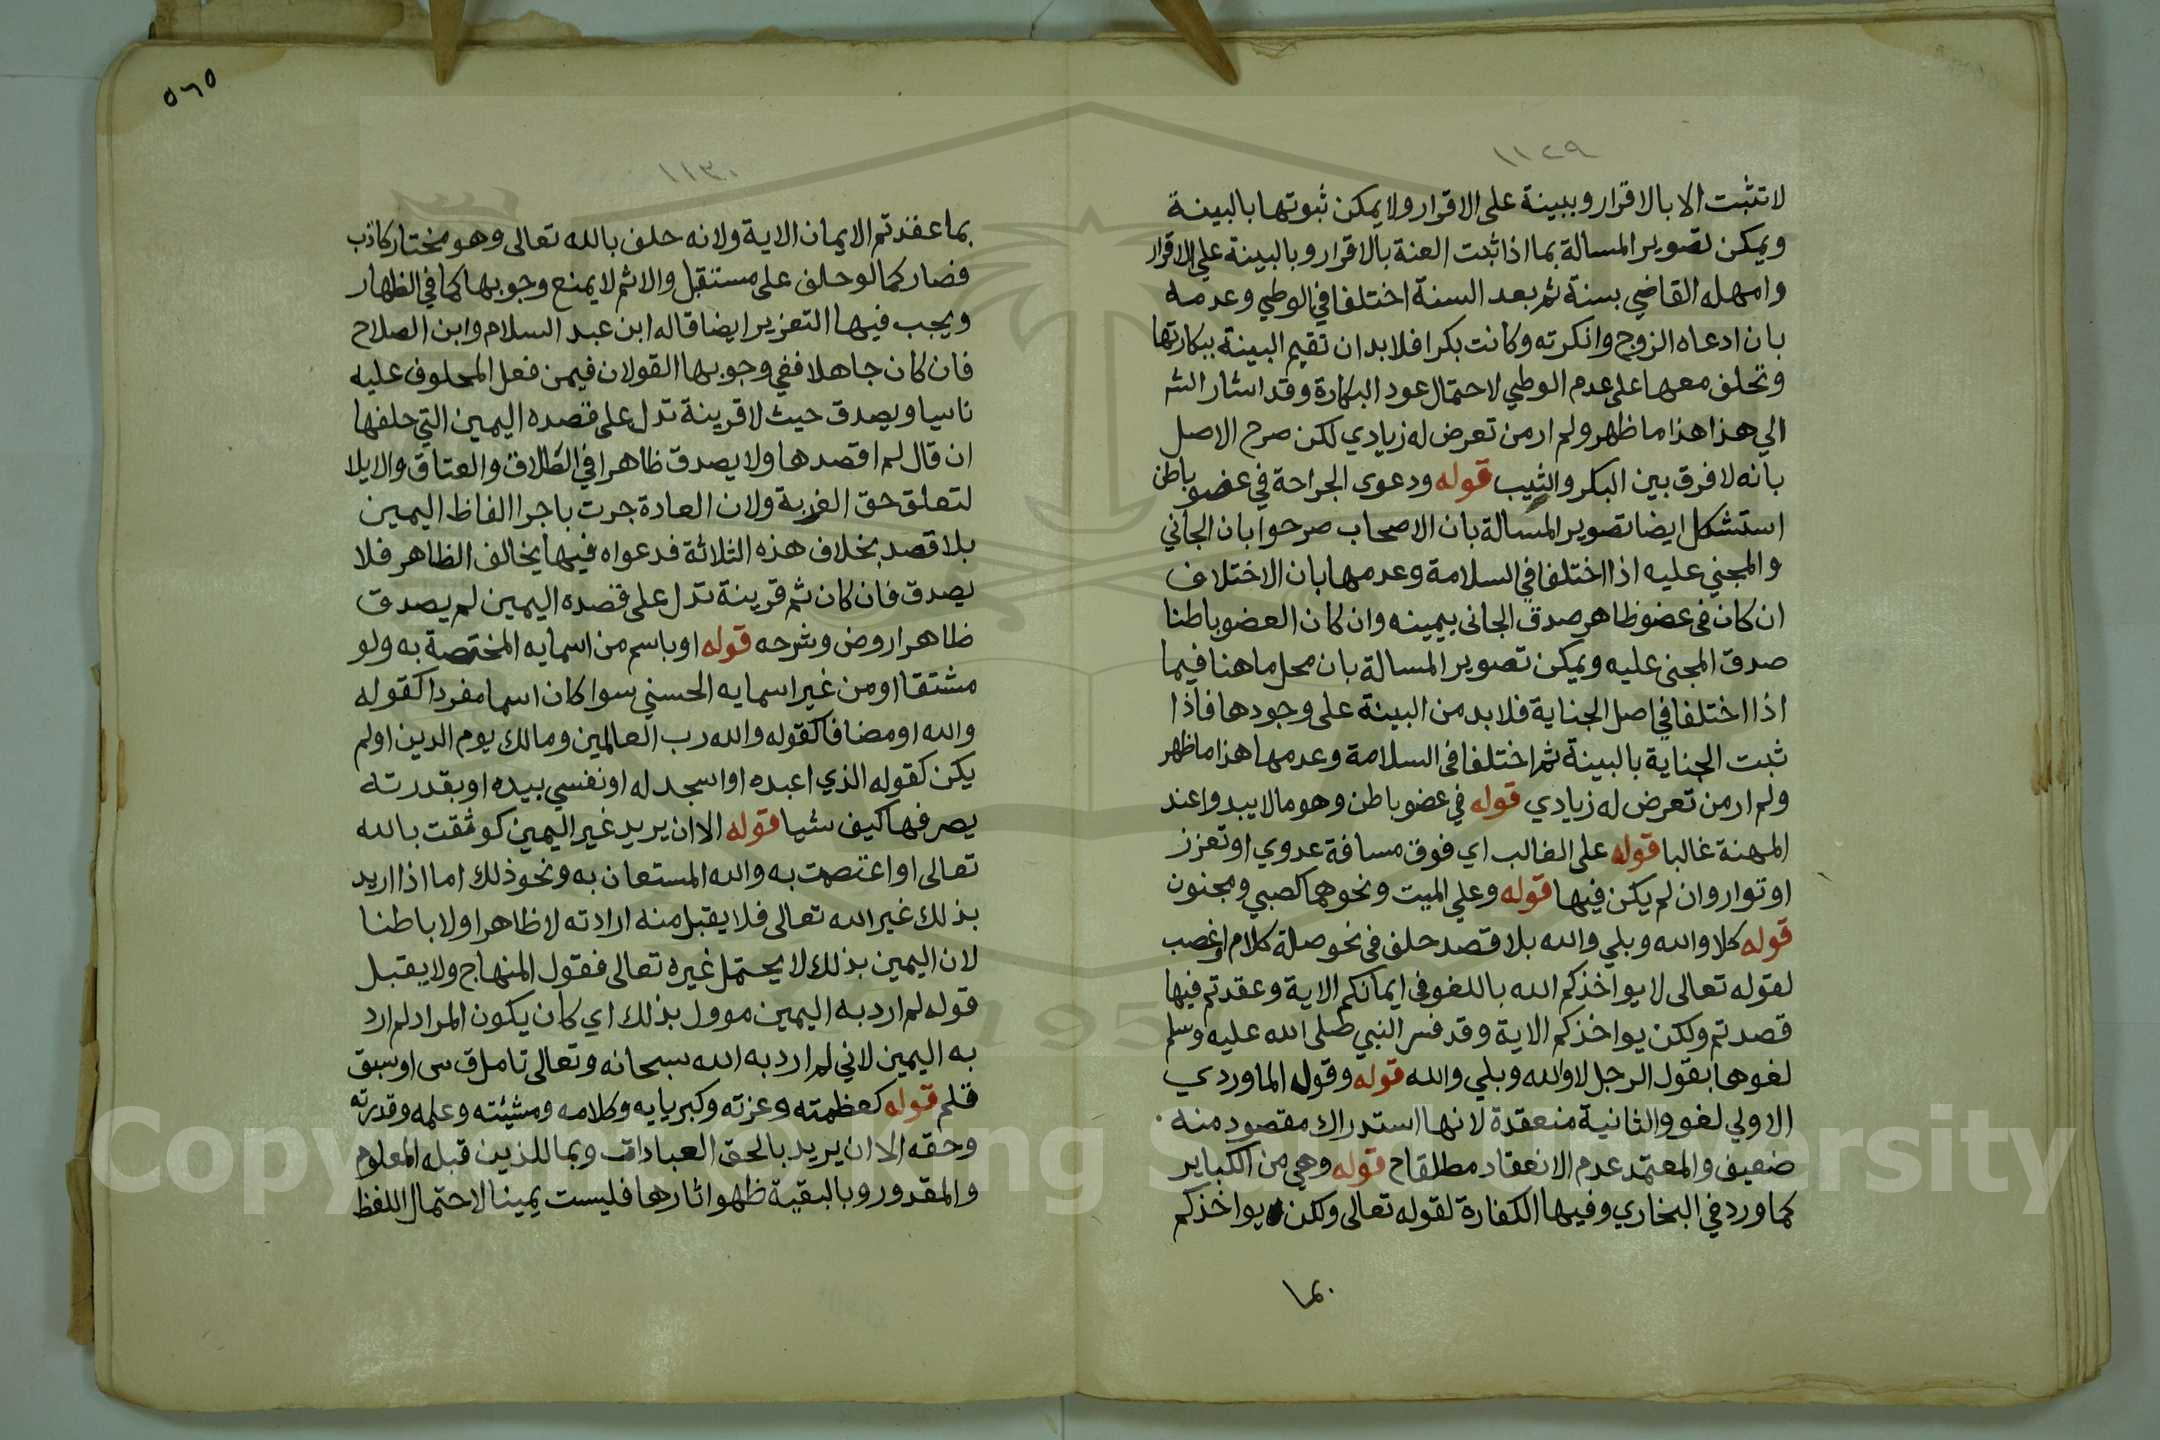 ١١٢٩
لا تثبت الا بالاقرار وببينة على الاقرار ولا يمكن ثبوتها بالبينة
ويمكن تصوير المسالة بما اذا ثبت العنة بالاقرار وبالبينة علي الاقرار
وامهله القاضي بسنة ثم بعد السنة اختلفا في الوطي وعدمه
بان ادعاه الزوج وانكرته وكانت بكرا فلا بد ان تقيم البينة ببكارتها
وتحلف معها على عدم الوطي لاحتمال عود البكارة وقد اشار الش
الي هذا هذا ما ظهر ولم ار من تعرض له زيادي لكن صرح الاصل
بانه لا فرق بين البكر والثيب قوله ودعوى الجراحة في عضو باطن
استشكل ايضا تصوير المسالة بان الاصحاب صرحوا بان الجاني
والمجني عليه اذا اختلفا في السلامة وعدمها بان الاختلاف
ان كان في عضو ظاهر صدق الجانى بيمينه وان كان العضو باطنا
صدق المجنى عليه ويمكن تصوير المسالة بان محل ما هنا فيما
اذا اختلفا في اصل الجناية فلا بد من البينة على وجودها فاذا
ثبت الجناية بالبينة ثم اختلفا فى السلامة وعدمها هذا ما ظهر
ولم ار من تعرض له زيادي قوله في عضو باطن وهو ما لا يبدوا عند
المهنة غالبا قوله على الغالب اي فوق مسافة عدوي او تعزز
او توار وان لم يكن فيها قوله وعلي الميت ونحوهما كصبي ومجنون
قوله كلا والله وبلي والله بلا قصد حلف فى نحو صلة كلام او غضب
لقوله تعالى لا يواخذكم الله باللغو فى ايمانكم الاية وعقدتم فيها
قصدتم ولكن يواخذكم الاية وقد فسر النبي صلى الله عليه وسلم
لغوها بقول الرجل لا والله وبلي والله قوله وقول الماوردي
الاولي لغو والثانية منعقدة لانها استدراك مقصود منه
ضعيف والمعتمد عدم الانعقاد مطلقا ح قوله وهي من الكباير
كما ورد في البخاري وفيها الكفارة لقوله تعالى ولكن يواخذكم
بما
٥٦٥
١١٣٠
بما عقدتم الايمان الاية ولانه حلف بالله تعالى وهو مختار كاذب
فصار كما لو حلف على مستقبل والاثم لا يمنع وجوبها كما في الظهار
ويجب فيها التعزير ايضا قاله ابن عبد السلام وابن الصلاح
فان كان جاهلا ففي وجوبها القولان فيمن فعل المحلوف عليه
ناسيا ويصدق حيث لا قرينة تدل على قصده اليمين التي حلفها
ان قال لم اقصدها ولا يصدق ظاهرا في الطلاق والعتاق والايلا
لتعلق حق الغير به ولان العادة جرت باجرا الفاظ اليمين
بلا قصد بخلاف هذه الثلاثة فدعواه فيها يخالف الظاهر فلا
يصدق فان كان ثم قرينة تدل على قصده اليمين لم يصدق
ظاهرا روض وشرحه قوله او باسم من اسمايه المختصة به ولو
مشتقا او من غير اسمايه الحسني سوا كان اسما مفردا كقوله
والله او مضافا كقوله والله رب العالمين ومالك يوم الدين او لم
يكن كقوله الذي اعبده او اسجد له او نفسي بيده او بقدرته
يصرفها كيف شيا قوله الا ان يريد غير اليمين كوثقت بالله
تعالى او اعتصمت به والله المستعان به ونحو ذلك اما اذا اريد
بذلك غير الله تعالى فلا يقبل منه ارادته لا ظاهرا ولا باطنا
لان اليمين بذلك لا يحتمل غيره تعالى فقول المنهاج ولا يقبل
قوله لم ارد به اليمين موول بذلك اي كان يكون المراد لم ارد
به اليمين لاني لم ارد به الله سبحانه وتعالى تامل ق س او سبق
قلم قوله كعظمته وعزته وكبريايه وكلامه ومشيئته وعلمه وقدرته
وحقه الا ان يريد بالحق العبادات وبما للذين قبله المعلوم
والمقدور وبالبقية ظهور اثارها فليست يمينا لاحتمال اللفظ
1957
Copyright © King Saud University